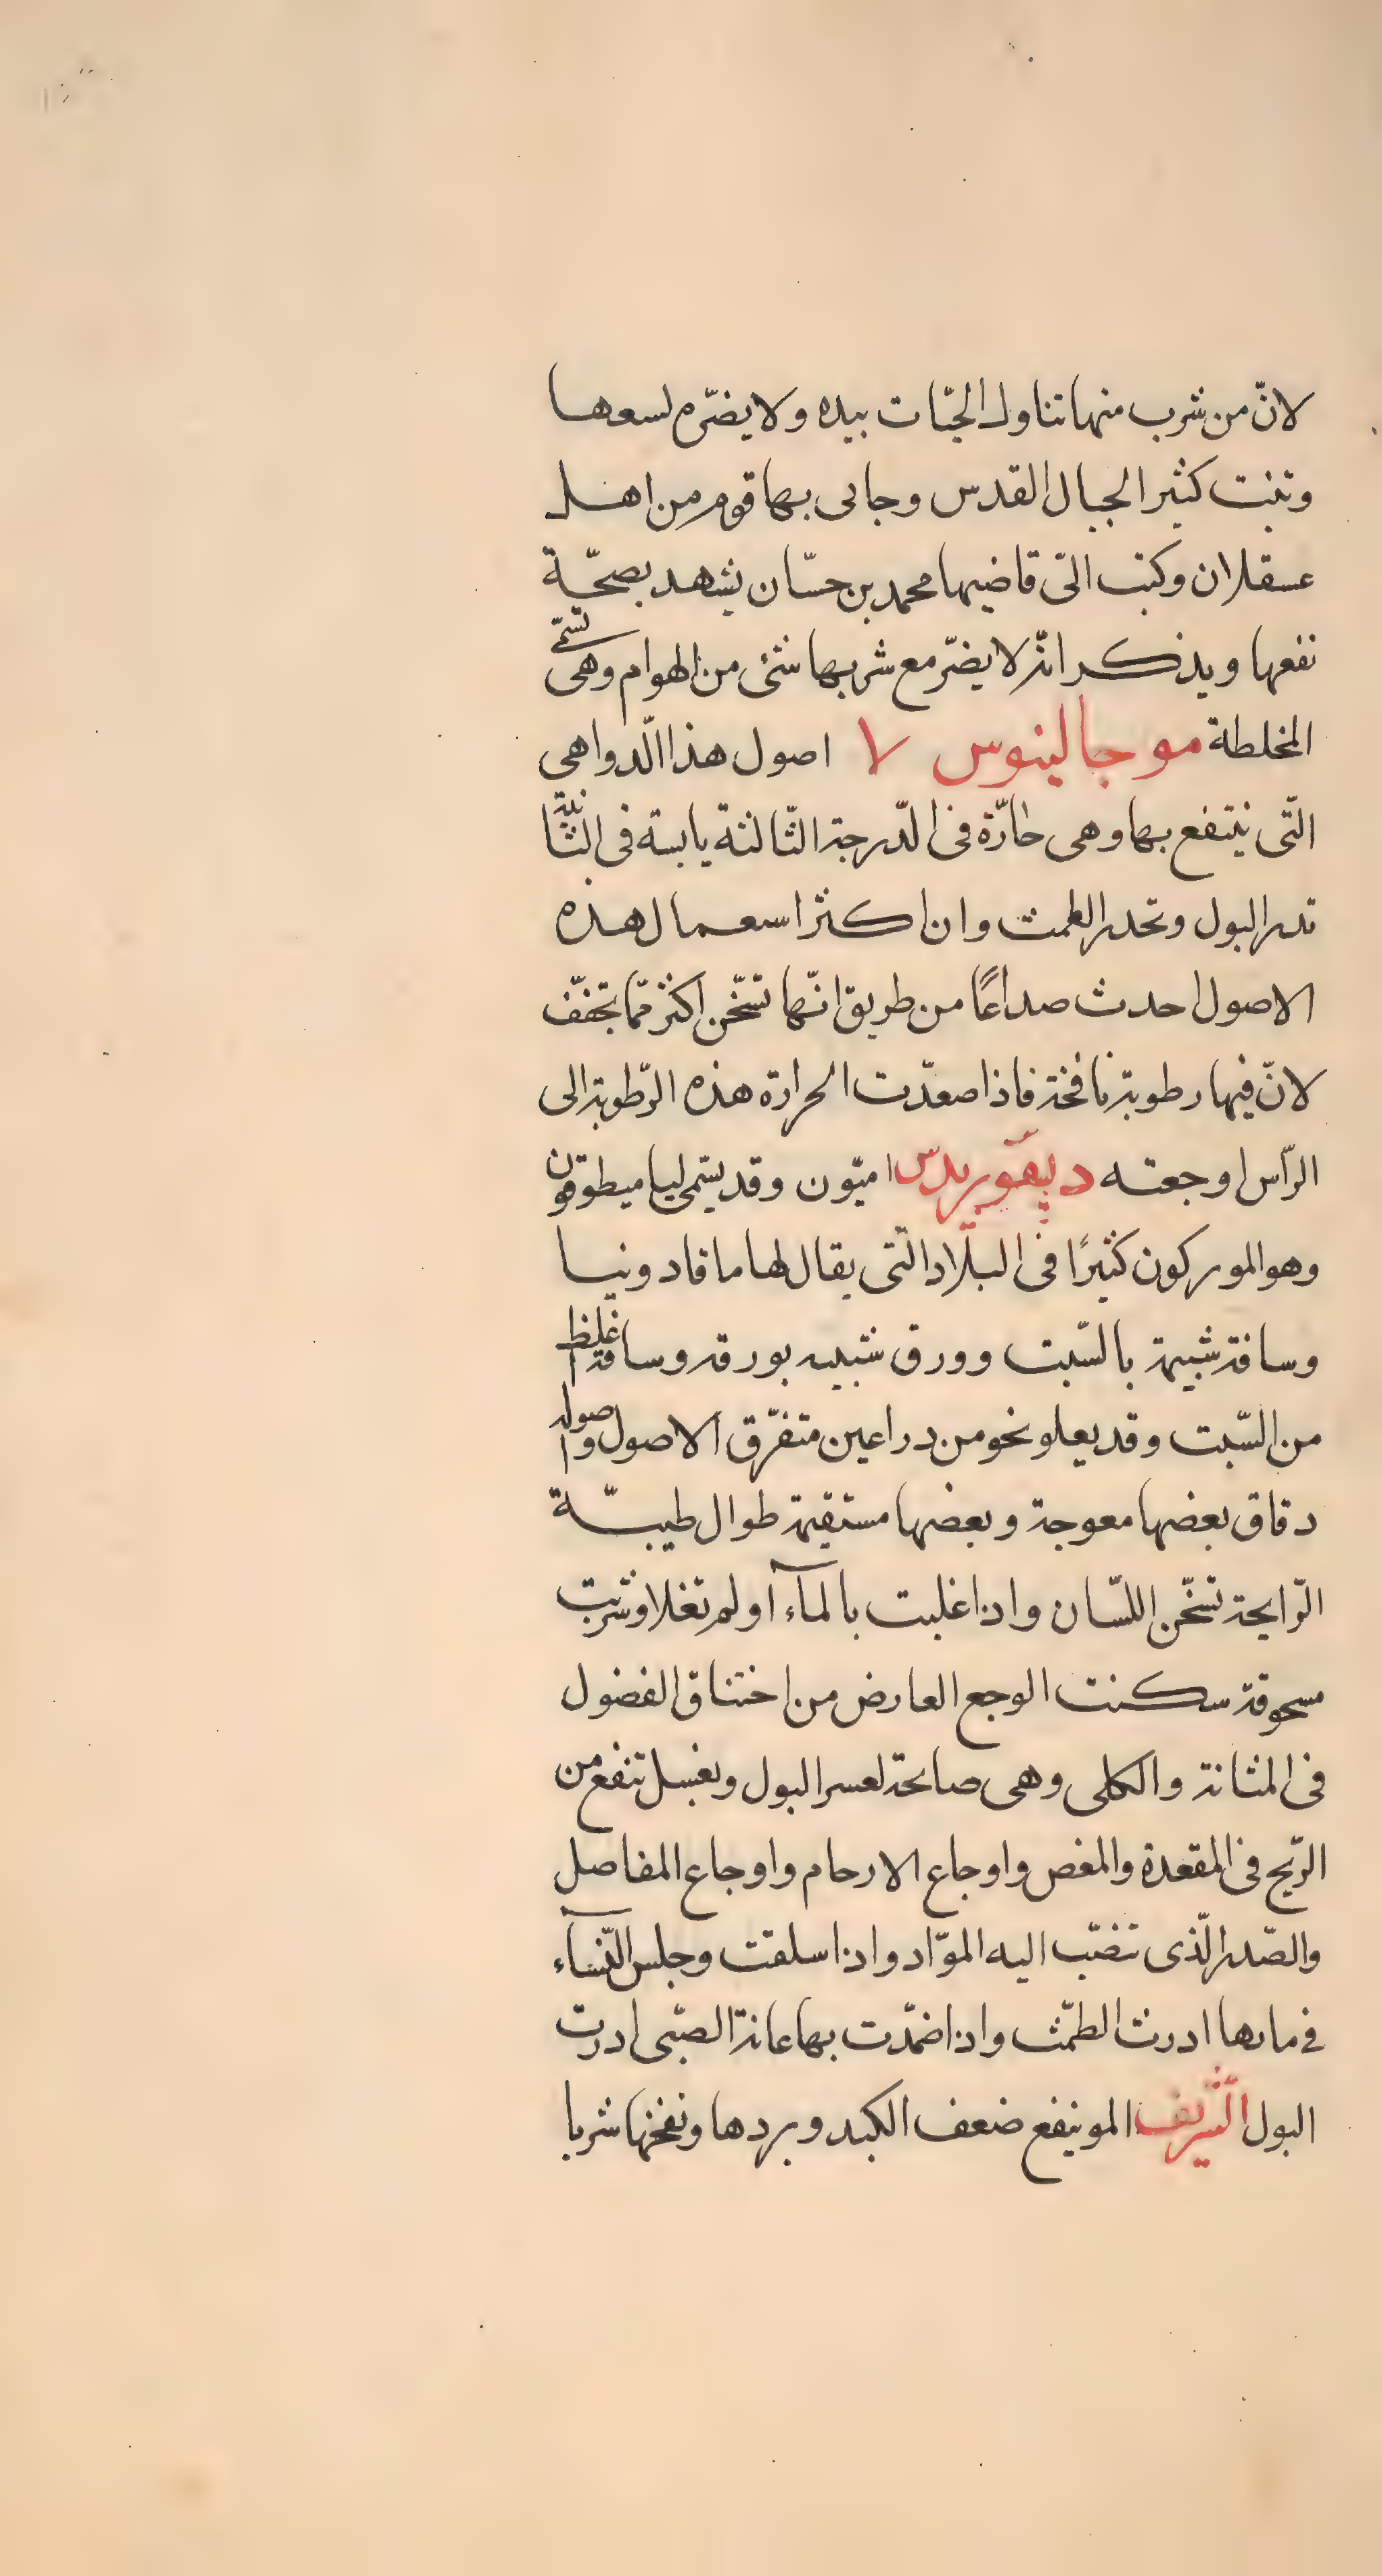 لانّ من شرب منها تناول الحيّات بيده ولا يضرّه لسعها
وتنبت كثيرا لجبال القدس وجانى بها قوم من اهل
عسقلان وكتب الىّ قاضيها محمد بن حسّان يشهد بصحّة
نفعها ويذكر انّه لا يضرّ مع شربها شئ من الهوام وهى تسمّى
المخلطة مو جالينوس ٧ اصول هذا الّدوا هى
الّتى ينتفع بها وهى حارّة فى الدّرجة الثّالثة يابسة فى الثّانية
تدر البول وتحدر الطمث وان اكثر اسعمال هذه
الاصول احدث صداعًا من طريق انّها تسّخن اكثر ممّا تجفّف
لانّ فيها رطوبة نافخة فاذا صعدّت الحرارة هذه الرّطوبة الى
الرّأس اوجعته ديسقوريدس ا ميّون وقد يسّمى ليا ميطوقون
وهو المو ركون كثيرًا فى البلاد الّتى يقال لها ماقادونيا
وساقة شبيهة بالسّبت وورق شبيه بورقه وساقه اغلظ
من السّبت وقد يعلو نحو من دراعين متفرّق الاصول واصوله
دقاق بعضها معوجة وبعضها مستقيمة طوال طيبّة
الرّايحة تسّخن اللسّان واذا غليت بالمآء او لم تغلا وشربت
مسحوقة سكنت الوجع العارض من اختناق الفضول
فى المثانة والكلى وهى صالحة لعسر البول وبعسل تنفع من
الرّيح فى المقعدة والمغص واوجاع الارحام واوجاع المفاصل
والصّدر الّذى تنصّب اليه الموّاد واذا سلقت وجلس النّسآء
فى مايها ادرت الطمّث واذا ضمّدت بها عانة الصبّى ادرت
البول الشّريف المو ينفع ضعف الكبد وبردها ونفخها شربا